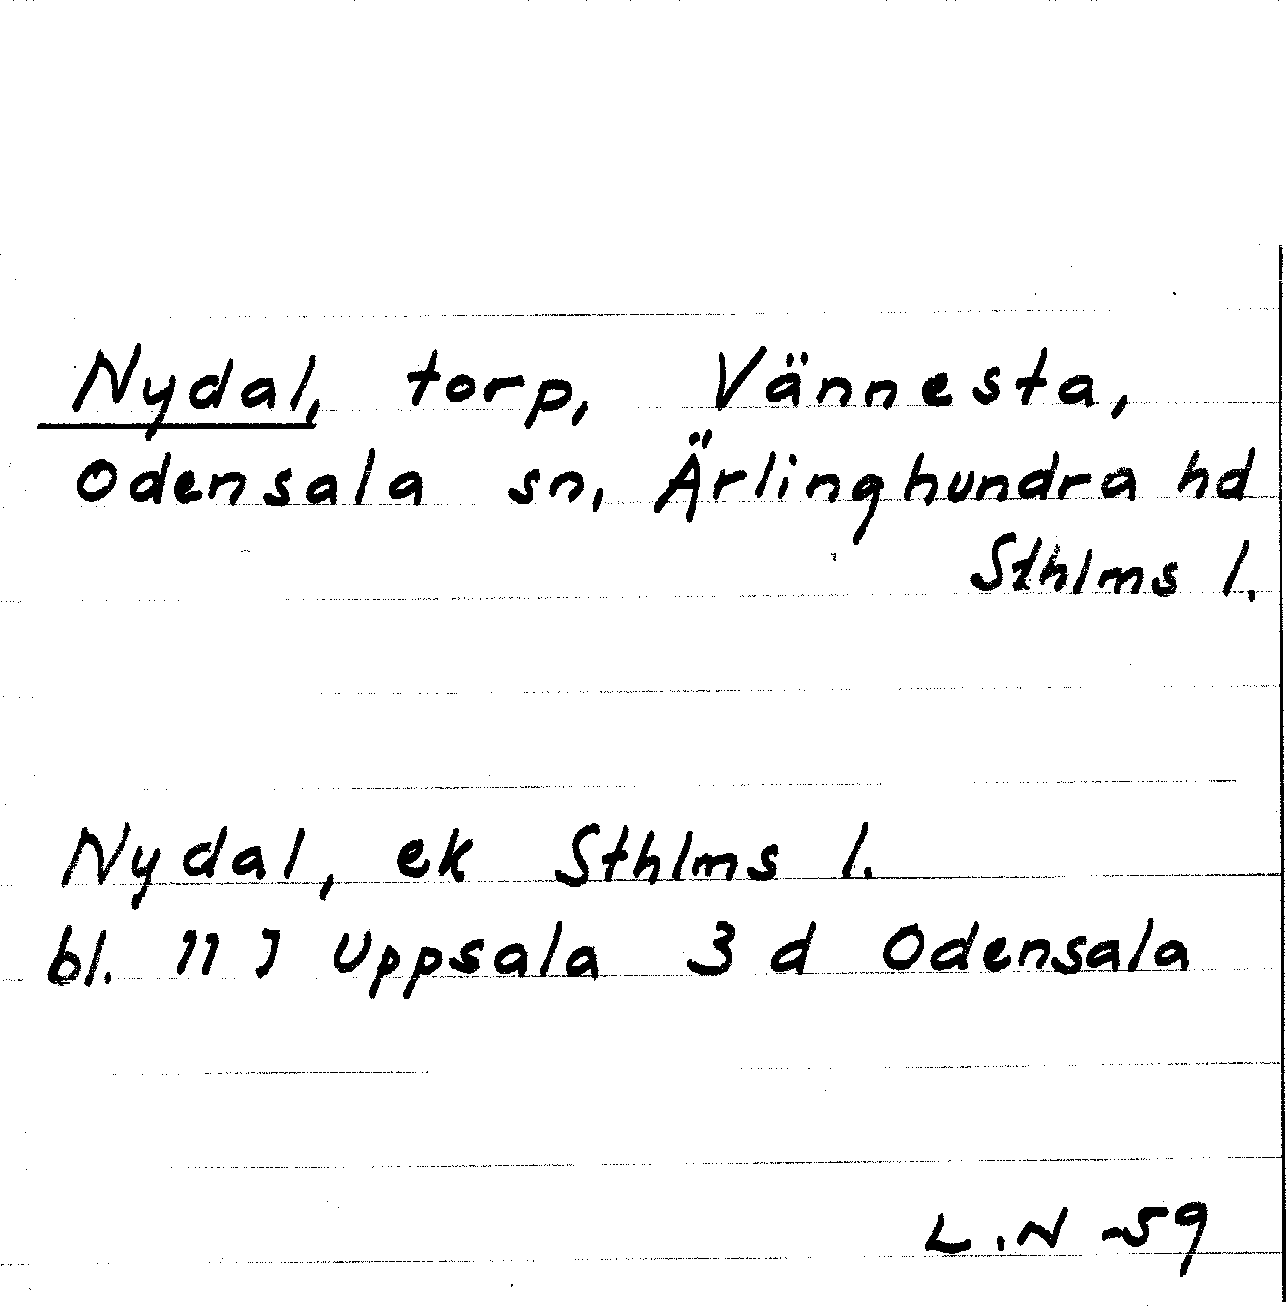 Nydal, torp, Vännesta,
Odensala sn, Ärlinghundra hd
Sthlms l.
Nydal, ek Sthlms l.
bl. 11 J Uppsala 3 d Odensala
L.N -59